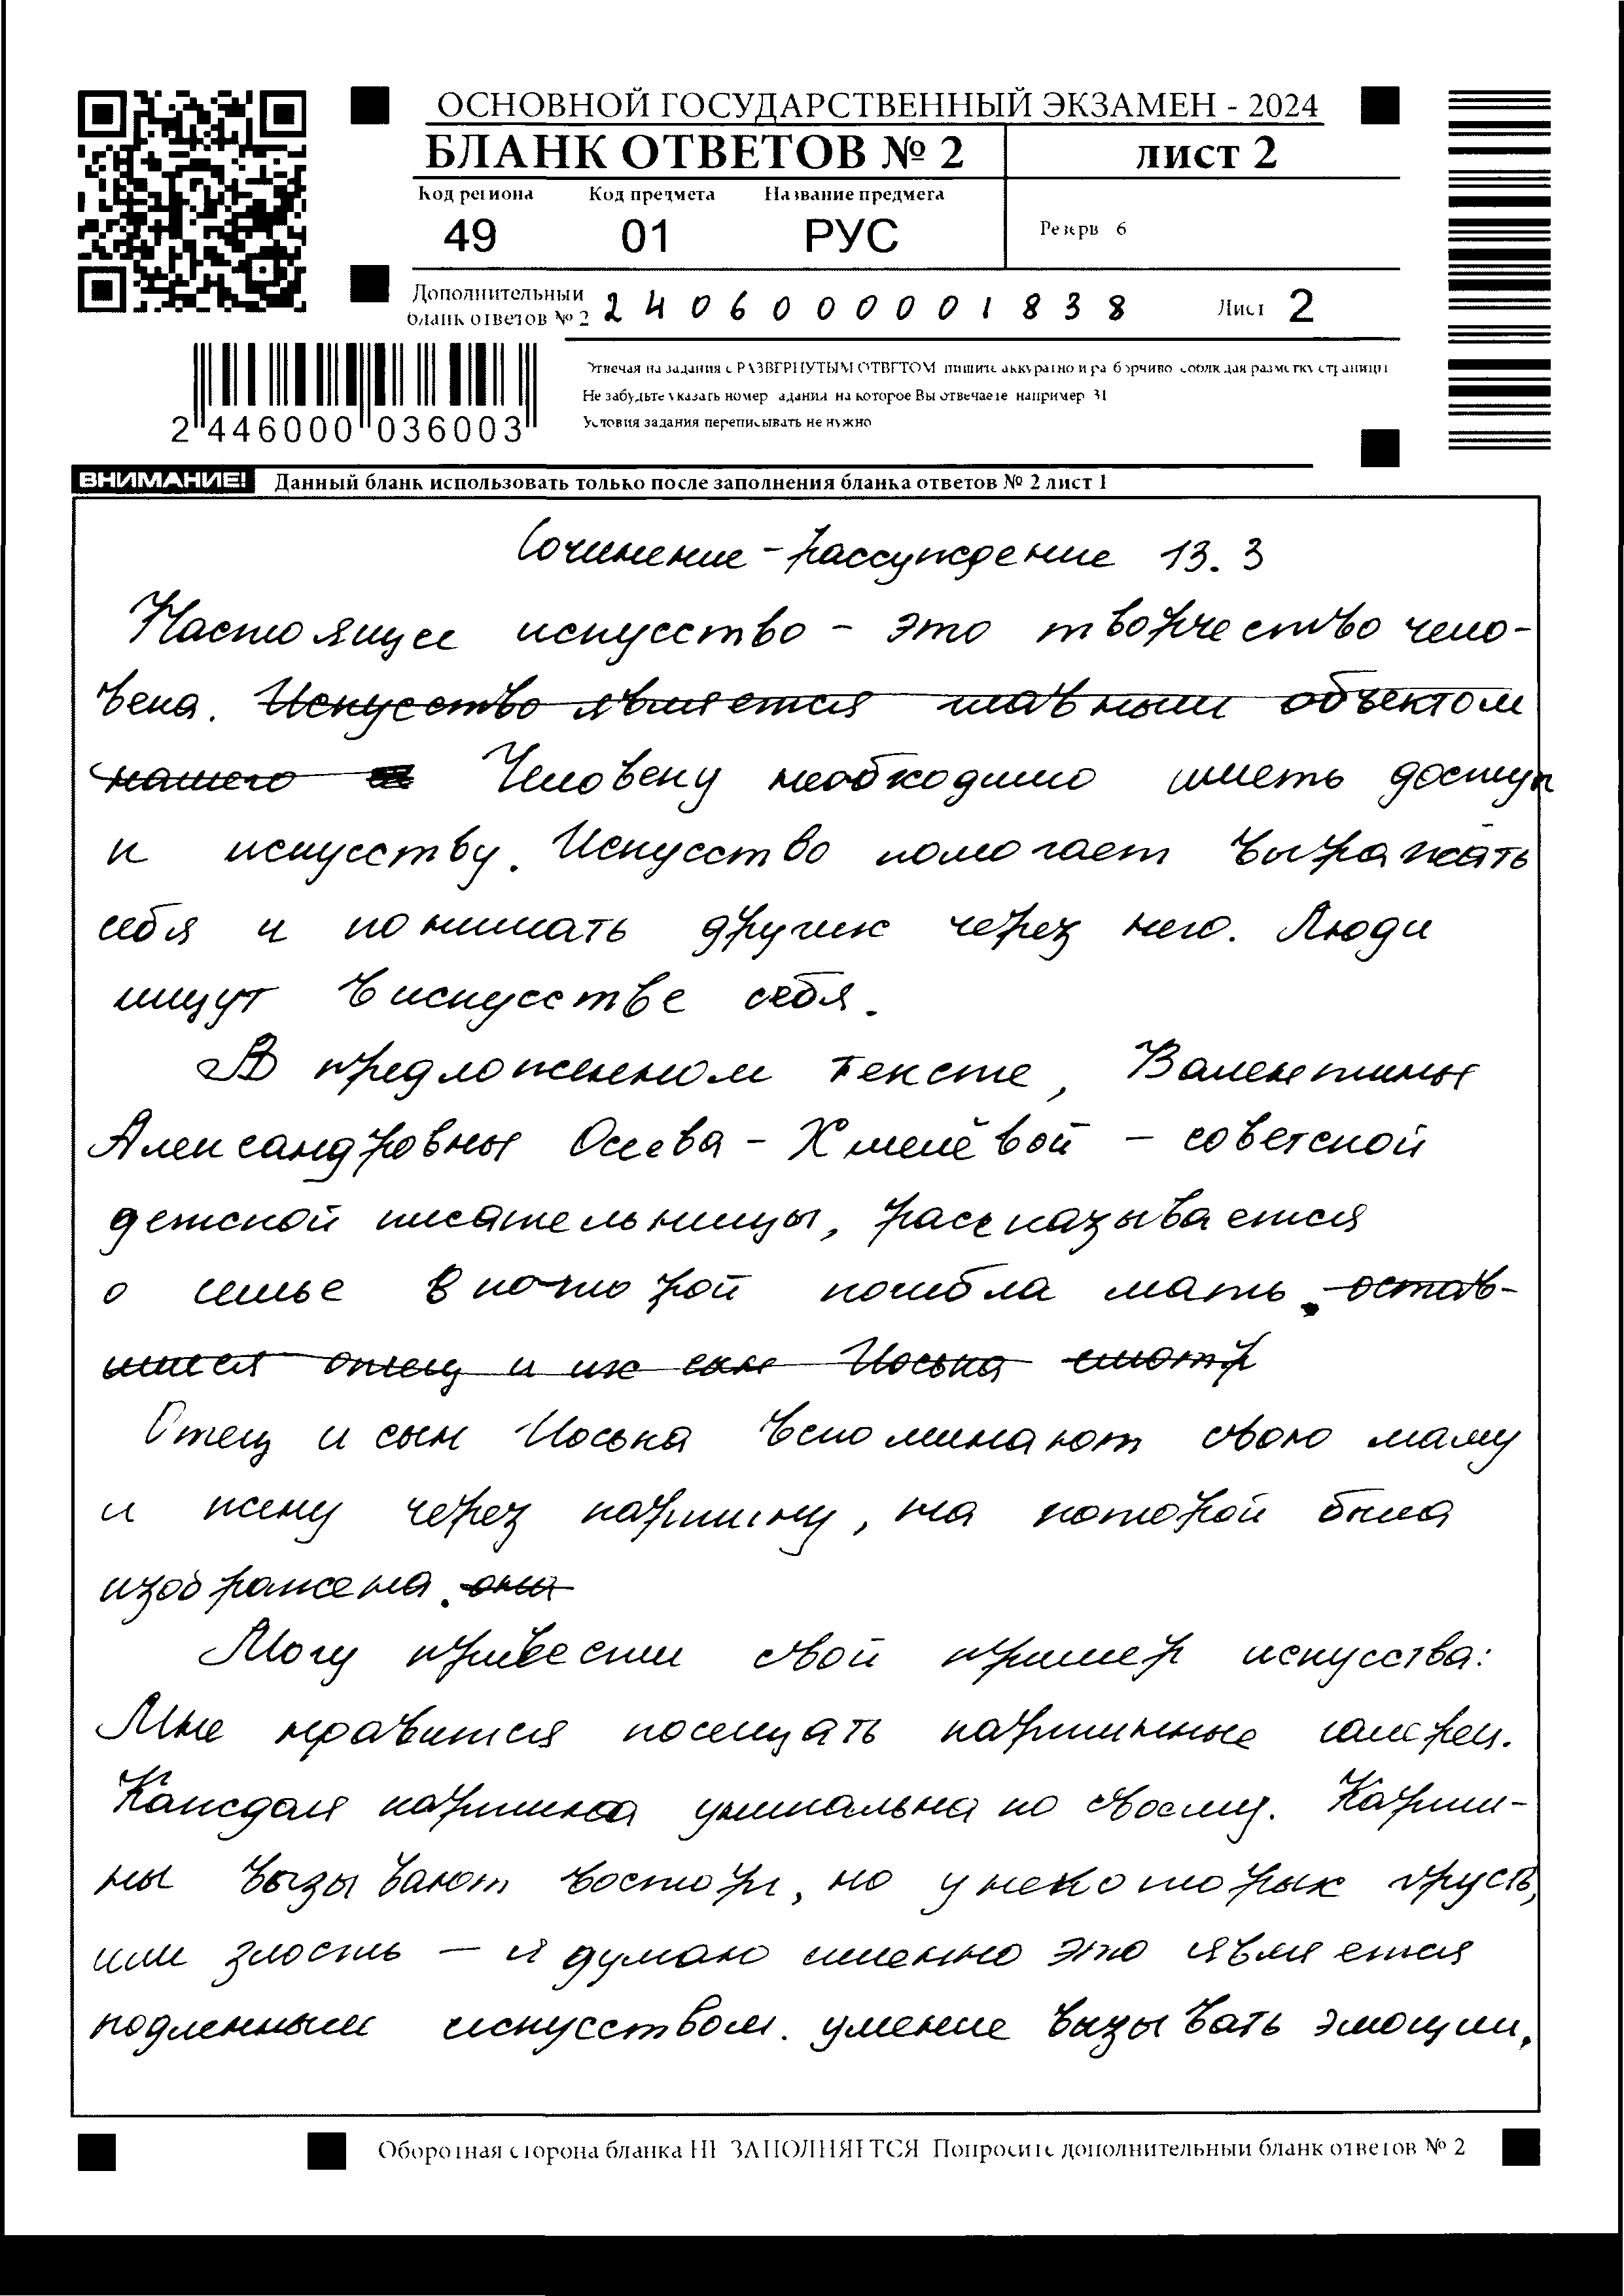 ОСНОВНОЙ ГОСУДАРСТВЕННЫЙ ЭКЗАМЕН - 2024
БЛАНК ОТВЕТОВ № 2 ЛИСТ 2
Код региона Код предмета Название предмета
49 01 РУС Резерв 6
Дополнительный
бланк ответов № 2 2406000001838 Лист 2
Отвечая на задания с РАЗВЕРНУТЫМ ОТВЕТОМ пишите аккуратно и разборчиво соблюдая разметку страницы
Не забудьте указать номер задания на которое Вы отвечаете например 31
Условия задания переписывать не нужно
2 446000 036003
ВНИМАНИЕ! Данный бланк использовать только после заполнения бланка ответов № 2 лист 1
Сочинение-рассуждение 13.3
Настоящее искусство – это творчество чело-
века. Искусство является главным объектом
нашего Человеку необходимо иметь доступ
к искусству. Искусство помогает выражать
себя и понимать других через него. Люди
ищут в искусстве себя.
В предложенном тексте, Валентины
Александровны Осеева-Хмелёвой – советской
детской писательницы, рассказывается
о семье в которой погибла мать. остав-
шиеся отец и их сын Иоська смотр
Отец и сын Иоська вспоминают свою маму
и жену через картину, на которой была
изображена. она
Могу привести свой пример искусства:
Мне нравится посещать картинные галереи.
Каждая картина уникальна по своему. Карти-
ны вызывают восторг, но у некоторых грусть,
или злость – я думаю именно это является
подленным искусством. умение вызывать эмоции.
Оборотная сторона бланка НЕ ЗАПОЛНЯЕТСЯ Попросите дополнительный бланк ответов № 2